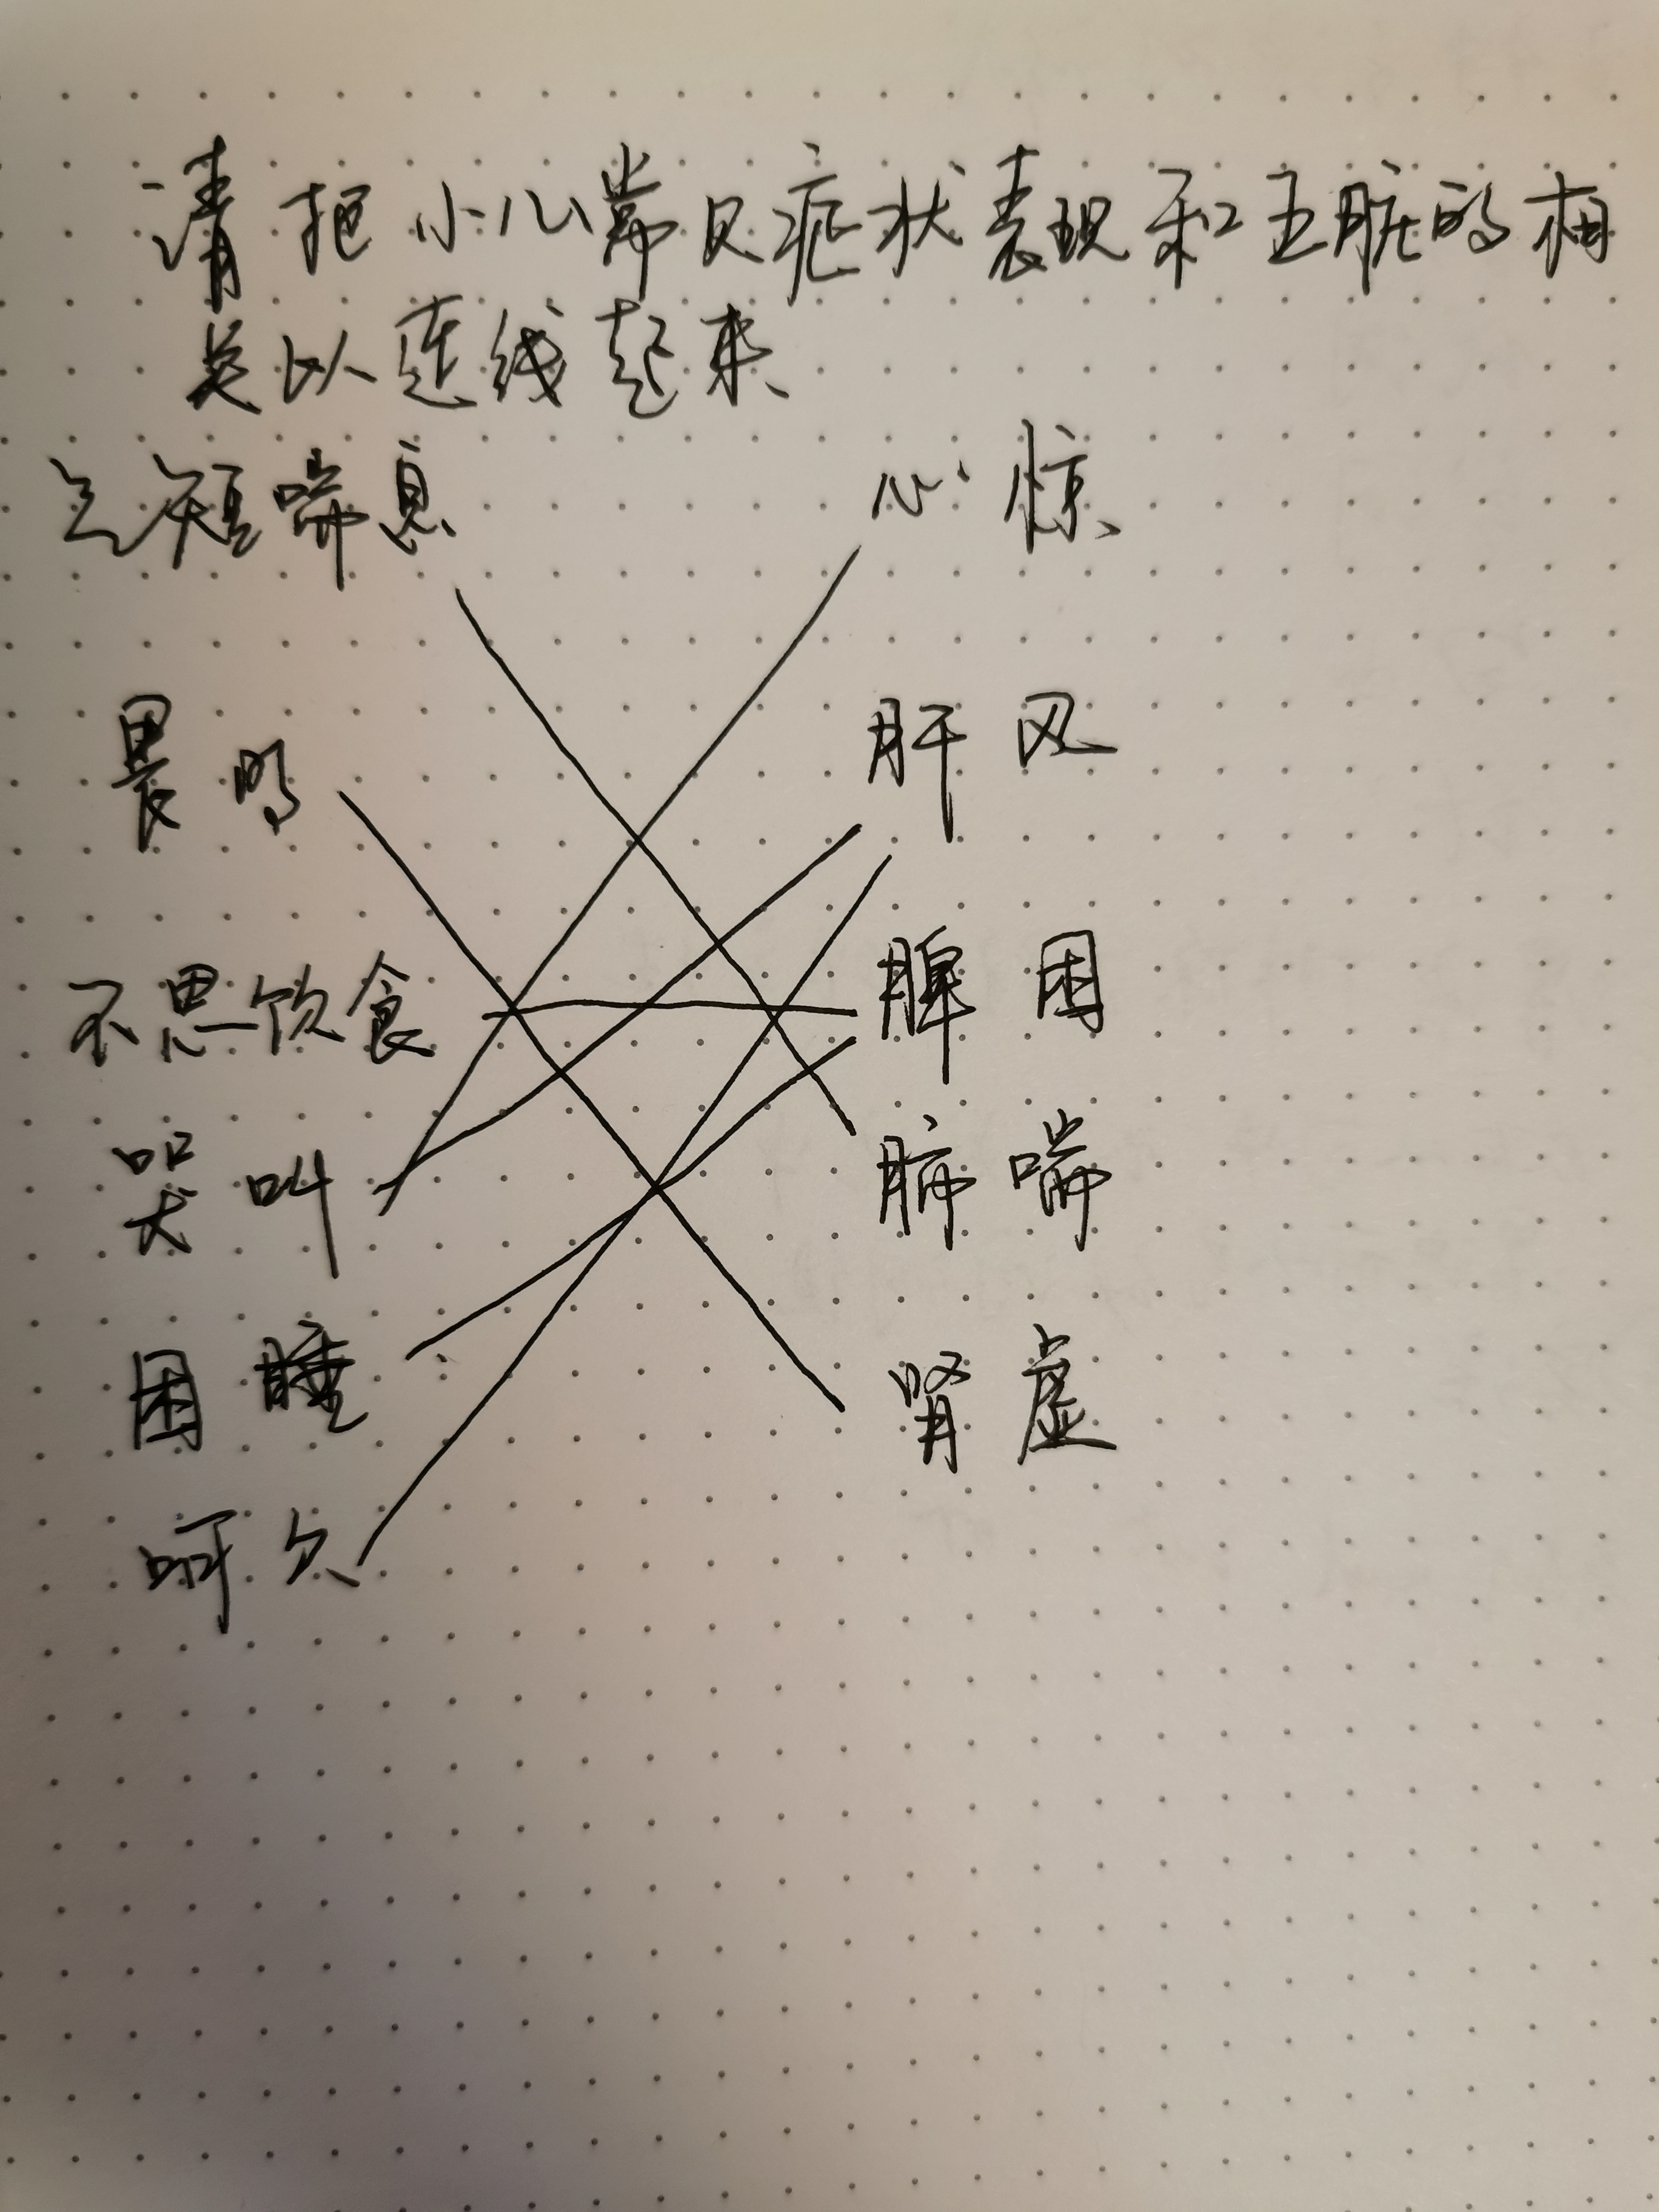 请把小儿常见症状表现和五脏的相
关以连线起来
气短喘息 心惊
畏明 肝风
不思饮食 脾困
哭叫 肺喘
困睡 肾虚
呵欠